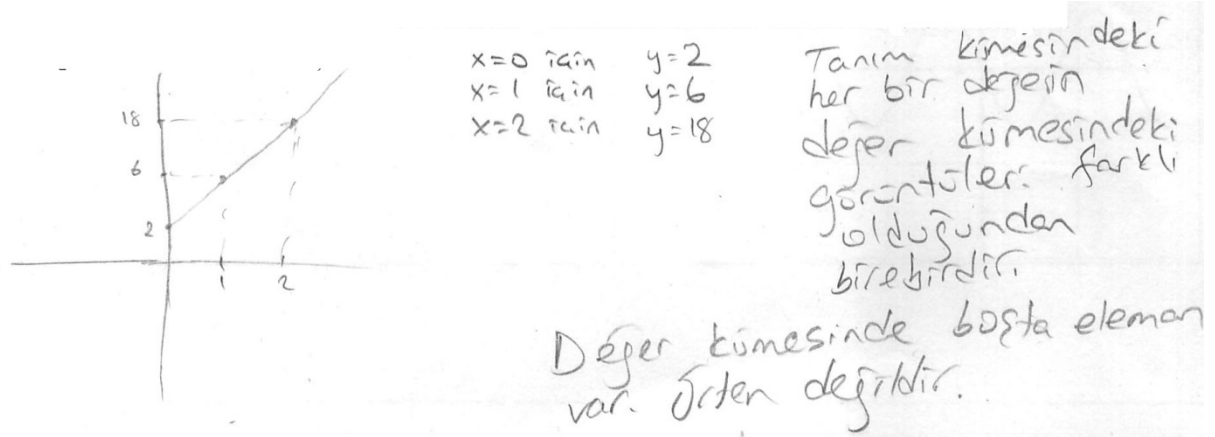 18
6
2
1
2
x=0 için y=2
x=1 için y=6
x=2 için y=18
Tanım kümesindeki
her bir değerin
değer kümesindeki
görüntüleri farklı
olduğundan
birebirdir.
Değer kümesinde boşta eleman
var. Örten değildir.